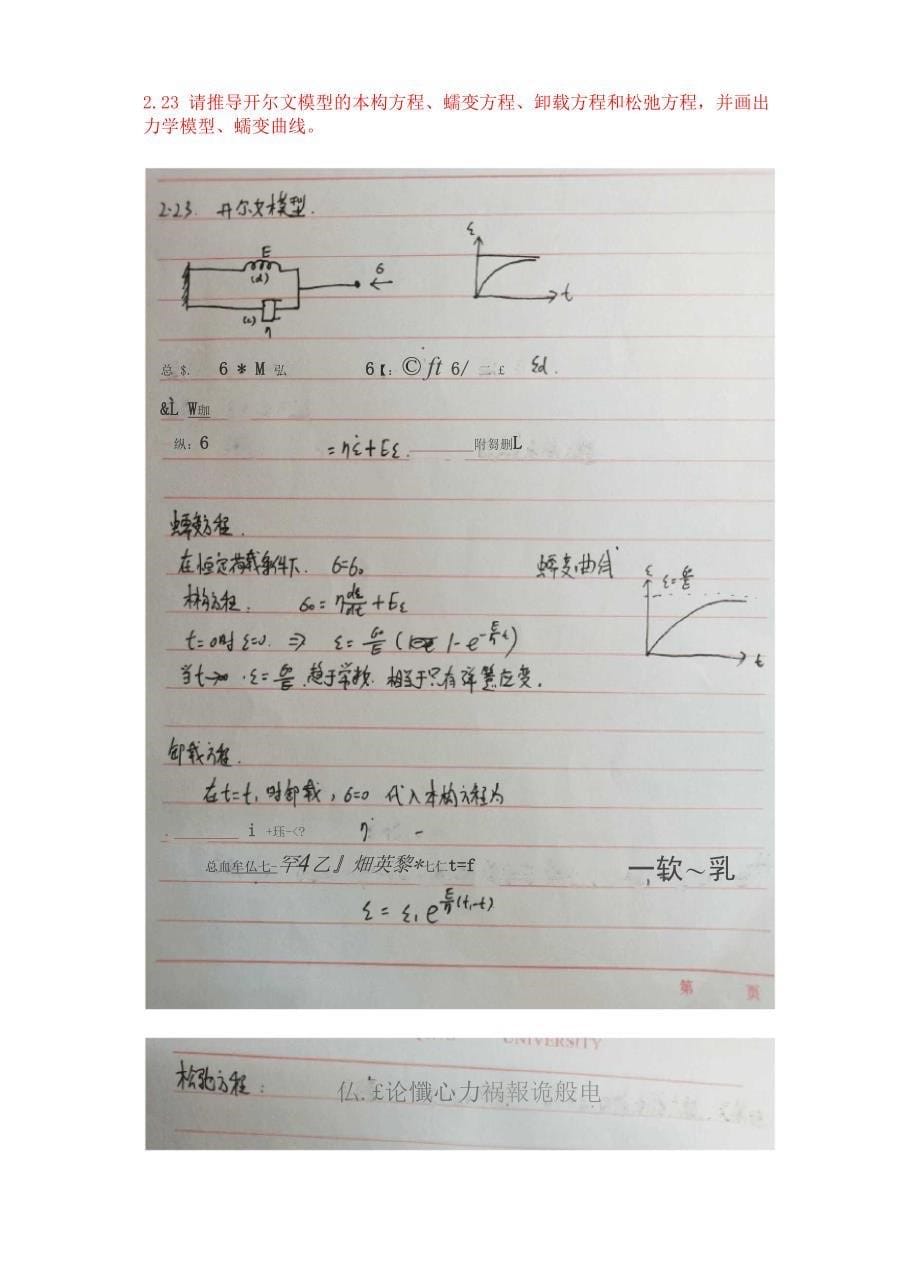 2.23 请推导开尔文模型的本构方程、蠕变方程、卸载方程和松弛方程，并画出
力学模型、蠕变曲线。
2-23. 开尔文模型.
E
(d)
σ
(c)
η
ε
t
总 $. 6 * M 弘 6【: © ft 6/ 二 £ εd.
&L W珈
纵: 6 = ηε̇+Eε. 附芻删L
蠕变方程.
在恒定荷载条件下. σ=σ₀ 蠕变曲线
本构方程. σ₀ = η dε/dt + Eε
ε
ε=σ₀/E
t=0时 ε=0. ⇒ ε= σ₀/E (1-e^(-E/η t))
t
当t→∞ . ε=σ₀/E 趋于常数. 相当于只有弹簧应变.
卸载方程.
在t=t₁时卸载, σ=0 代入本构方程为
i +珏-<? η -
总血牟仏七-罕4乙』畑英黎*七仁t=f 一软～乳
ε = ε₁ e^(E/η (t₁-t))
第 页
UNIVERSITY
松弛方程: 仏.£论懺心力祸報诡般电